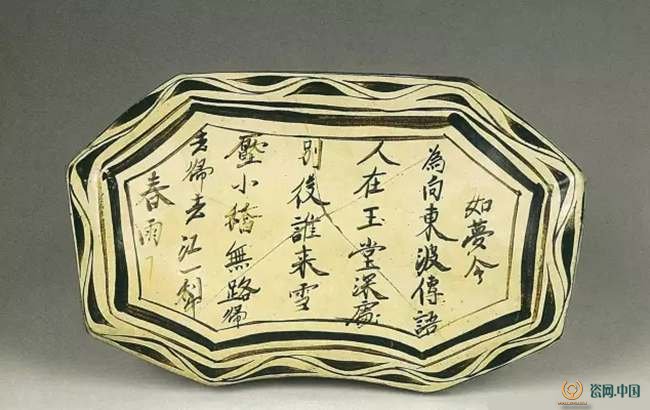 如夢令
為向東波傳語
人在玉堂深處
別後誰来雪
壓小橋無路歸
去歸去江一犁
春雨
瓷网.中国